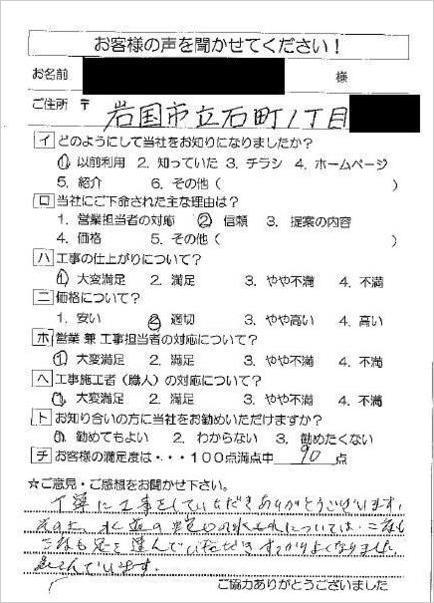 お客様の声を聞かせてください！
お名前 様
ご住所 〒 岩国市立石町1丁目
イ どのようにして当社をお知りになりましたか？
1. 以前利用 2. 知っていた 3. チラシ 4. ホームページ
5. 紹介 6. その他（ ）
ロ 当社にご下命された主な理由は？
1. 営業担当者の対応 2 信頼 3. 提案の内容
4. 価格 5. その他（ ）
ハ 工事の仕上がりについて？
1 大変満足 2. 満足 3. やや不満 4. 不満
ニ 価格について？
1. 安い 2 適切 3. やや高い 4. 高い
ホ 営業 兼 工事担当者の対応について？
1 大変満足 2. 満足 3. やや不満 4. 不満
ヘ 工事施工者（職人）の対応について？
1. 大変満足 2. 満足 3. やや不満 4. 不満
ト お知り合いの方に当社をお勧めいただけますか？
1. 勧めてもよい 2. わからない 3. 勧めたくない
チ お客様の満足度は・・・100点満点中 90 点
☆ご意見・ご感想をお聞かせ下さい。
丁寧に工事をしていただきありがとうございます。
水道の 水もれについては 二度も
三度も足を運んでいただきすっかりよくなりました
喜んでいます。
ご協力ありがとうございました